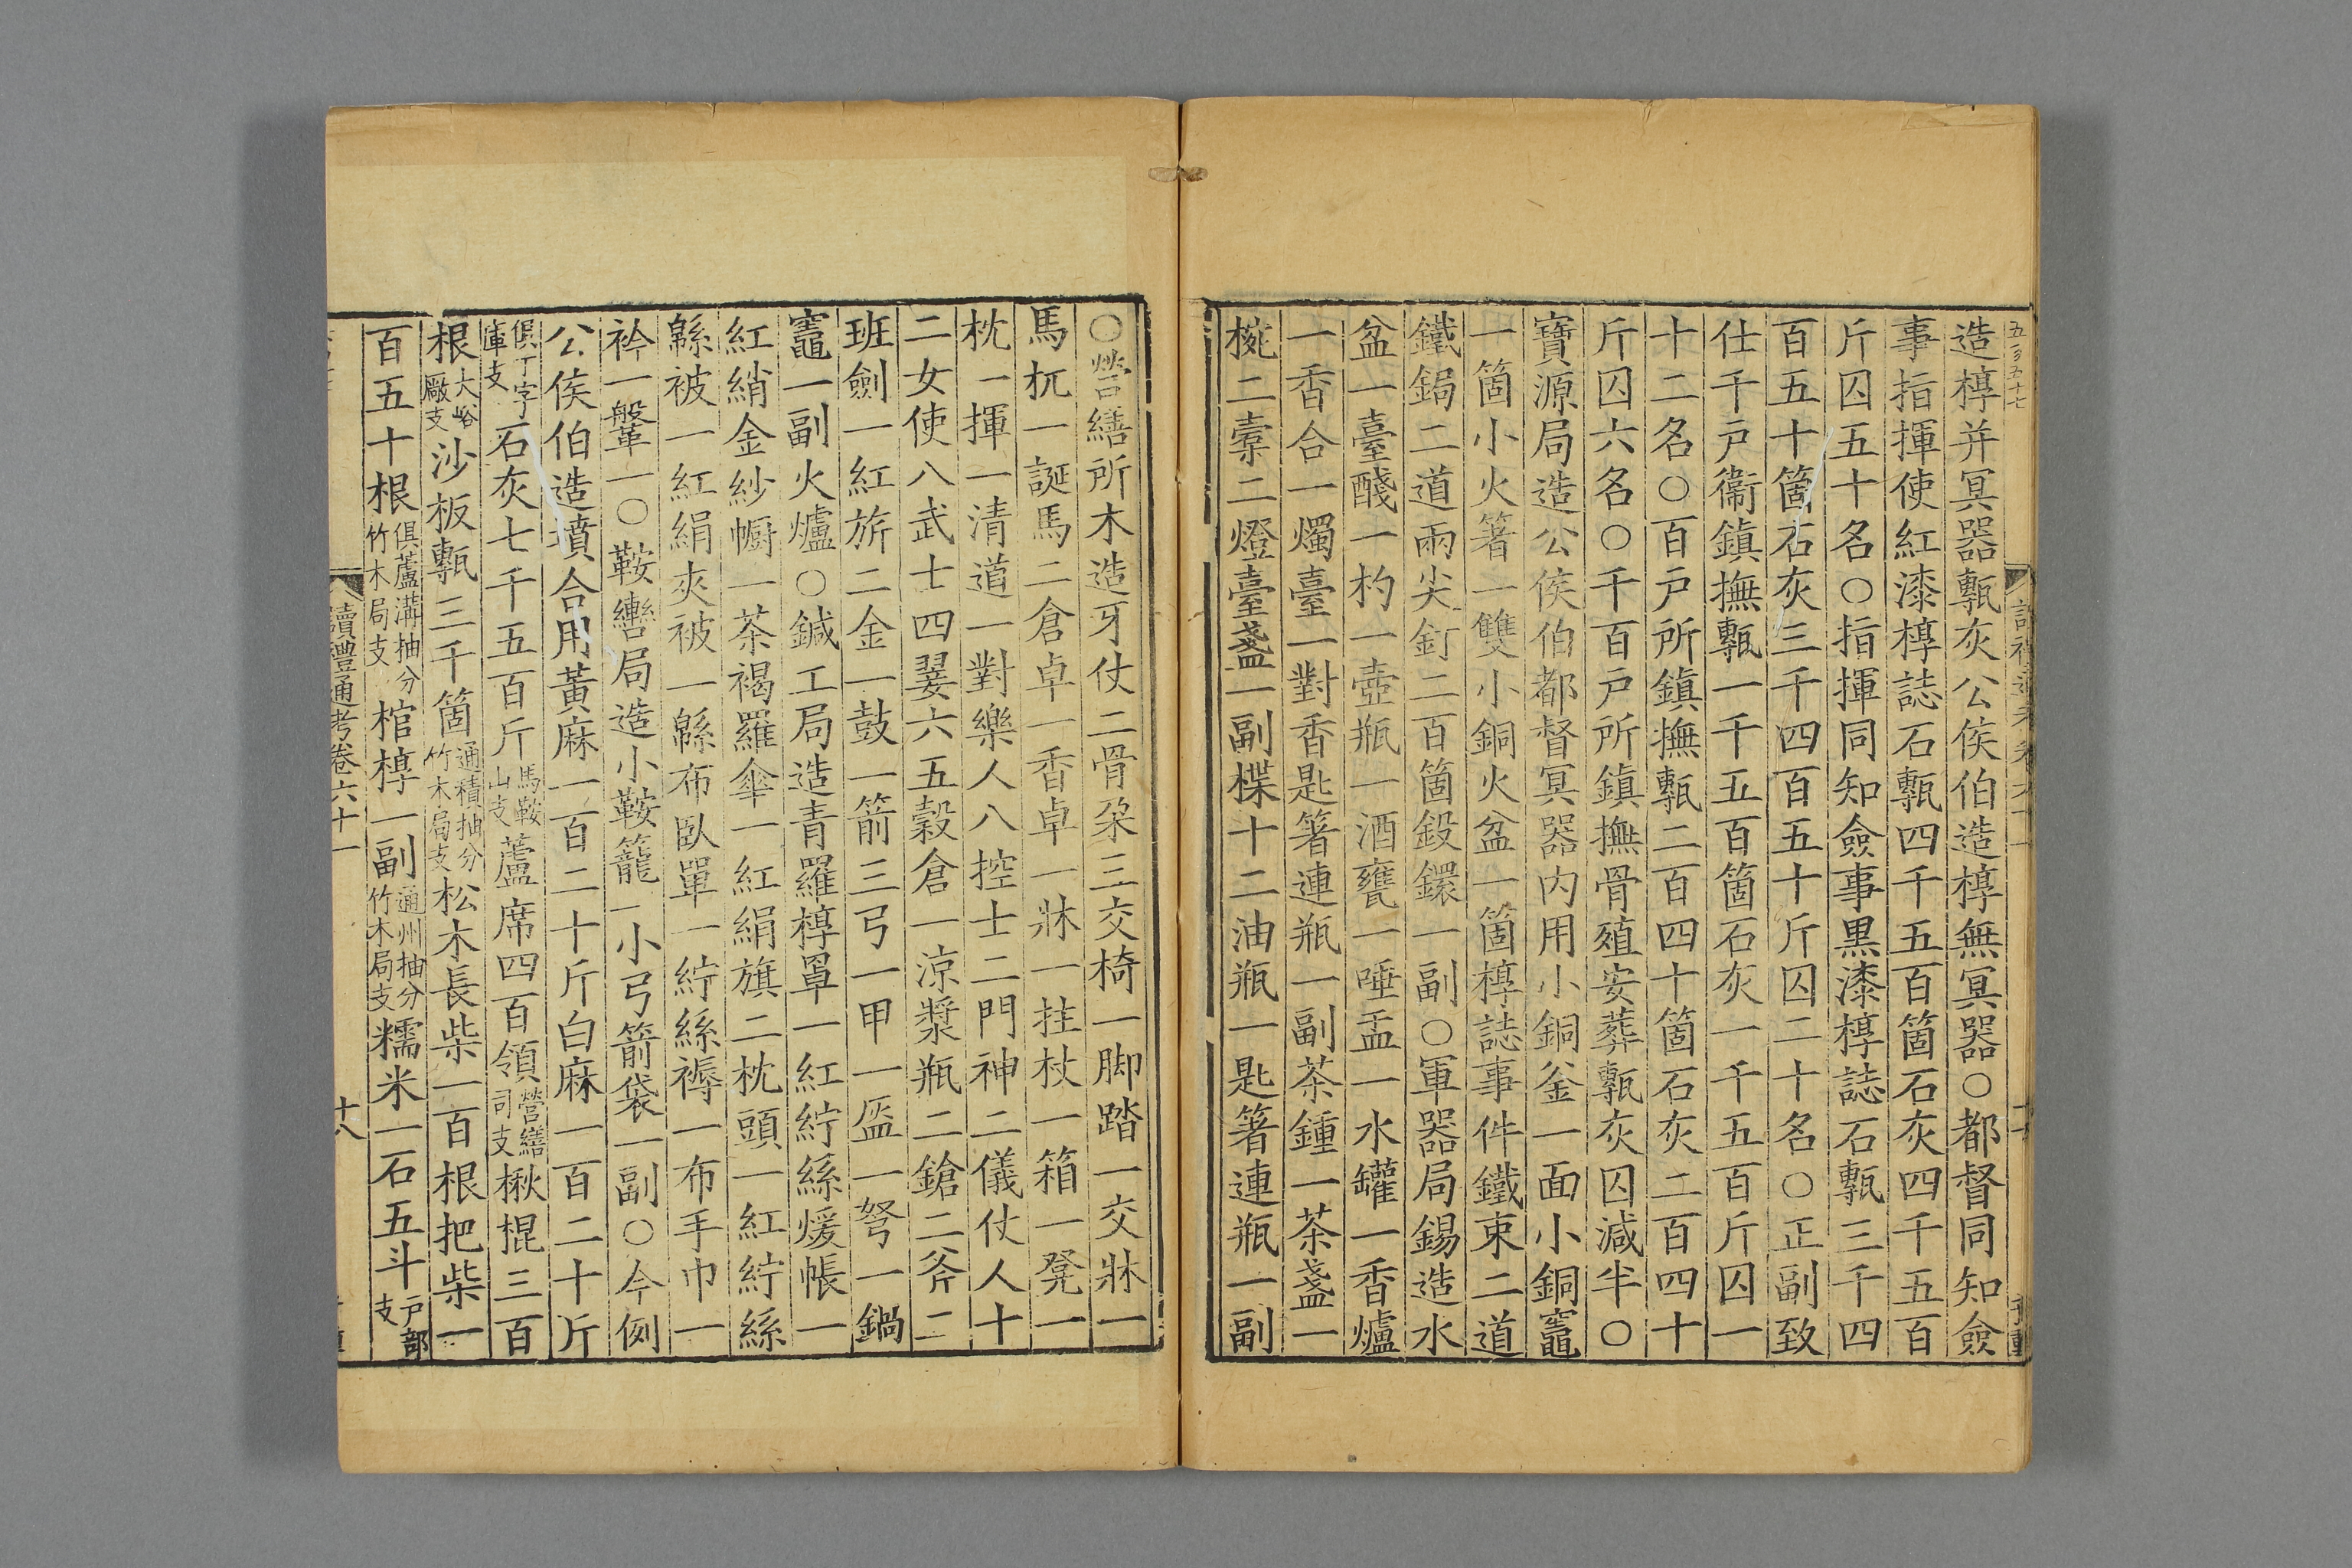 造槨并冥器甎灰公侯伯造槨無冥器○都督同知僉
事指揮使紅漆槨誌石甎四千五百箇石灰四千五百
斤囚五十名○指揮同知僉事黑漆槨誌石甎三千四
百五十箇石灰三千四百五十斤囚二十名○正副致
仕千戸衞鎮撫甎一千五百箇石灰一千五百斤囚一
十二名○百戸所鎮撫甎二百四十箇石灰二百四十
斤囚六名○千百戸所鎮撫骨殖安葬甎灰囚減半○
寶源局造公侯伯都督冥器内用小銅釜一面小銅竈
一箇小火箸一雙小銅火盆一箇槨誌事件鐵束二道
鐵鋦二道兩尖釘二百箇鈠鐶一副○軍器局錫造水
盆一臺醆一杓一壺瓶一酒甕一唾盂一水罐一香爐
一香合一燭臺一對香匙箸連瓶一副茶鍾一茶盞一
椀二橐二燈臺盞一副楪十二油瓶一匙箸連瓶一副
○營繕所木造牙仗二骨朵三交椅一脚踏一交牀一
馬杌一誕馬二倉卓一香卓一牀一拄杖一箱一凳一
枕一揮一清道一對樂人八控士二門神二儀仗人十
二女使八武士四翣六五穀倉一涼漿瓶二鎗二斧二
班劍一紅旂二金一鼓一箭三弓一甲一盔一弩一鍋
竈一副火爐○鍼工局造青羅槨罩一紅紵絲煖帳一
紅綃金紗㡡一茶褐羅傘一紅絹旗二枕頭一紅紵絲
緜被一紅絹夾被一緜布臥單一紵絲褥一布手巾一
衿一鞶一○鞍轡局造小鞍籠一小弓箭袋一副○今例
公侯伯造墳合用黃麻一百二十斤白麻一百二十斤
俱丁字庫支石灰七千五百斤馬鞍山支蘆席四百領營繕司支楸棍三百
根大峪廠支沙板甎三千箇通積抽分竹木局支松木長柴一百根把柴一
百五十根俱蘆溝抽分竹木局支棺槨一副通州抽分竹木局支糯米一石五斗戸部支
讀禮通考卷六十一
十八